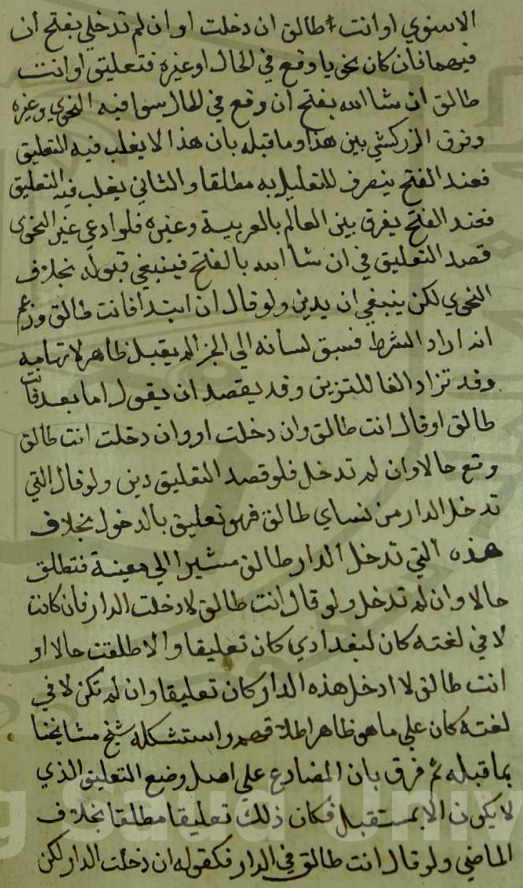 الاسنوي او انت طالق ان دخلت او ان لم تدخلي بفتح ان
فيهما فان كان نحويا وقع في الحال او غيره فتعليق او انت
طالق ان شا الله بفتح ان وقع في الحال سوا فيه النحوي وغيره
وفرق الزركشي بين هذا وما قبله بان هذا لا يغلب فيه التعليق
فعند الفتح ينصرف للتعليل به مطلقا والثاني يغلب فيه التعليق
فعند الفتح يفرق بين العالم بالعربية وغيره فلو ادعى غير النحوي
قصد التعليق في ان شا الله بالفتح فينبغي قبوله بخلاف
النحوي لكن ينبغي ان يدين ولو قال ان ابتدا فانت طالق وزعم
انه اراد الشرط فسبق لسانه الي الجزا لم يقبل ظاهرا لانهامه
وقد تزاد الفا للتزيين وقد يقصد ان يقول اما بعد فانت
طالق او قال انت طالق وان دخلت او وان دخلت انت طالق
وقع حالا وان لم تدخل فلو قصد التعليق دين ولو قال التي
تدخل الدار من نساي طالق فهو تعليق بالدخول بخلاف
هذه التي تدخل الدار طالق مشيرا الي معينة فتطلق
حالا وان لم تدخل ولو قال انت طالق لا دخلت الدار فان كانت
لا في لغته كان لبغدادي كان تعليقا والا طلقت حالا او
انت طالق لا ادخل هذه الدار كان تعليقا وان لم تكن لا في
لغته كان علي ما هو ظاهر اطلاقهم واستشكله شيخ مشايخنا
بما قبله ثم فرق بان المضارع علي اصل وضع التعليق الذي
لا يكون الا بمستقبل فكان ذلك تعليقا مطلقا بخلاف
الماضي ولو قال انت طالق في الدار فكقوله ان دخلت الدار لكن